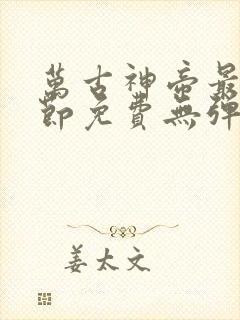 萬古神帝最
節免費無彈
姜太文